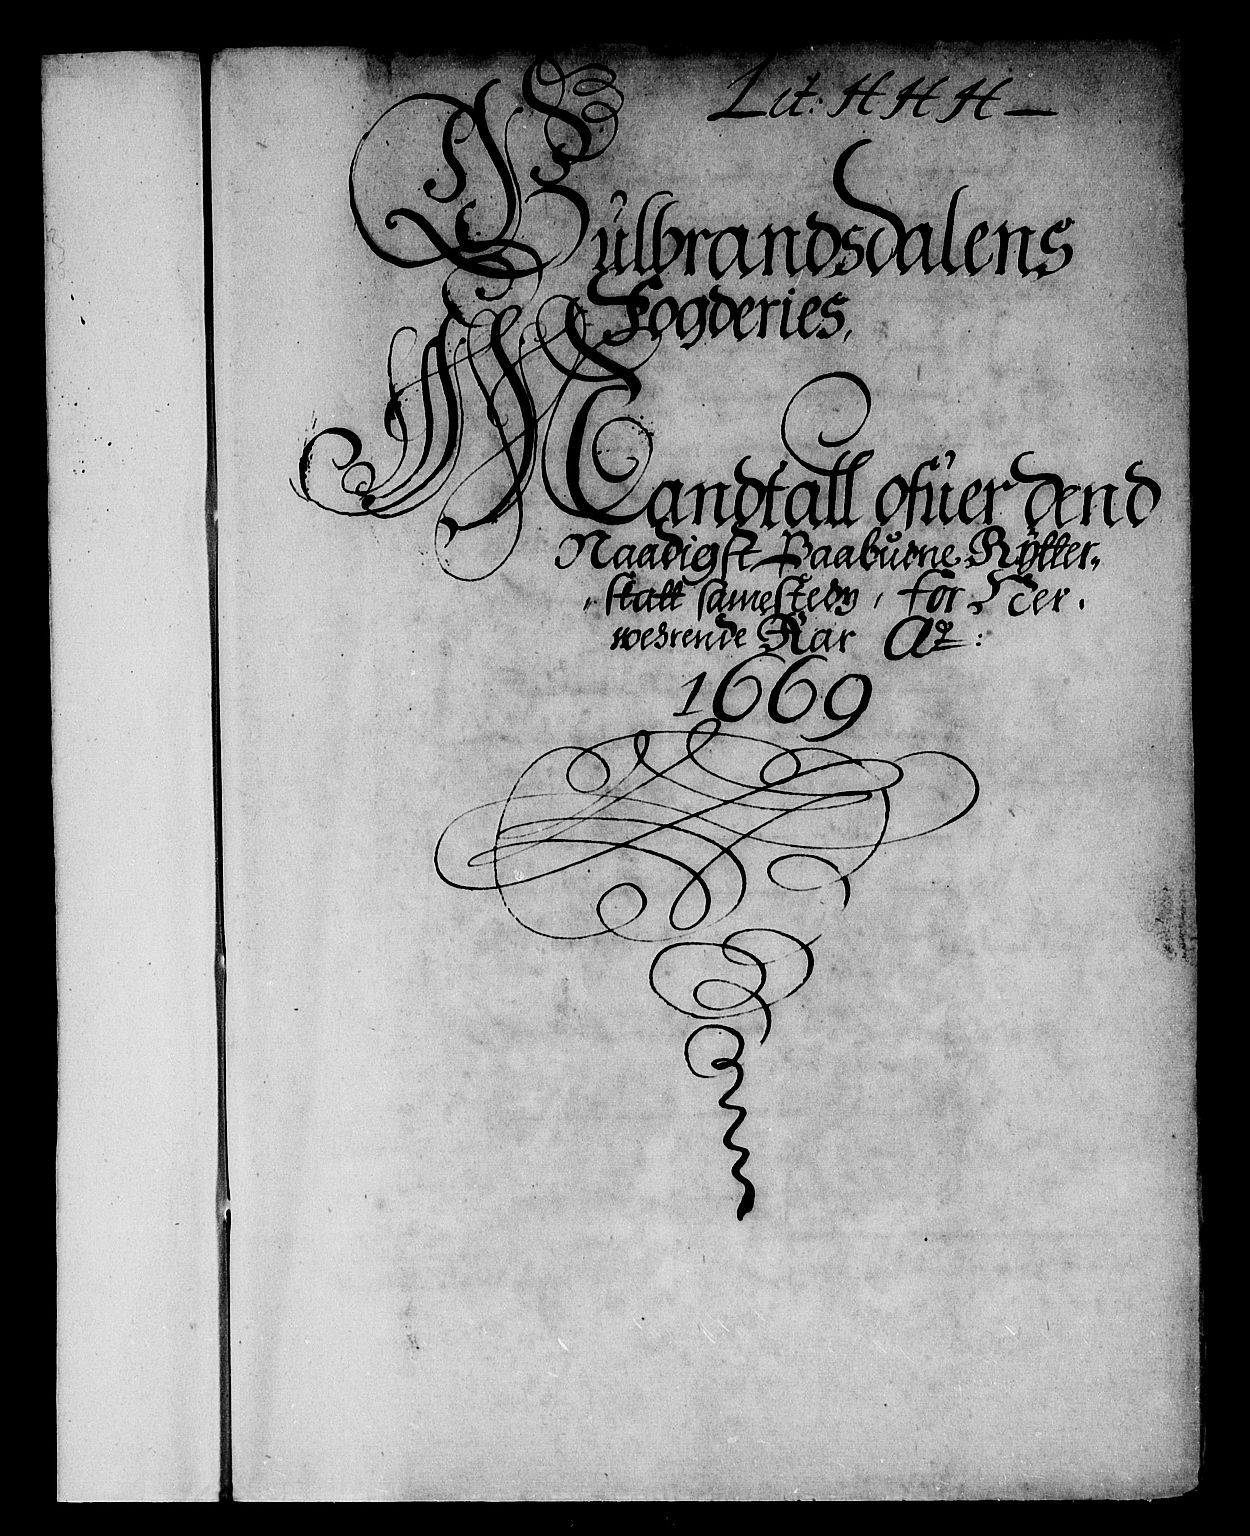 Lit: HHH
Gulbrandsdalens
Fogderies,
Mandtall ofuer dend
Naadigst Paabudne Rytter-
skatt sammesteds, for Ner-
werende Aar Ao:
1669